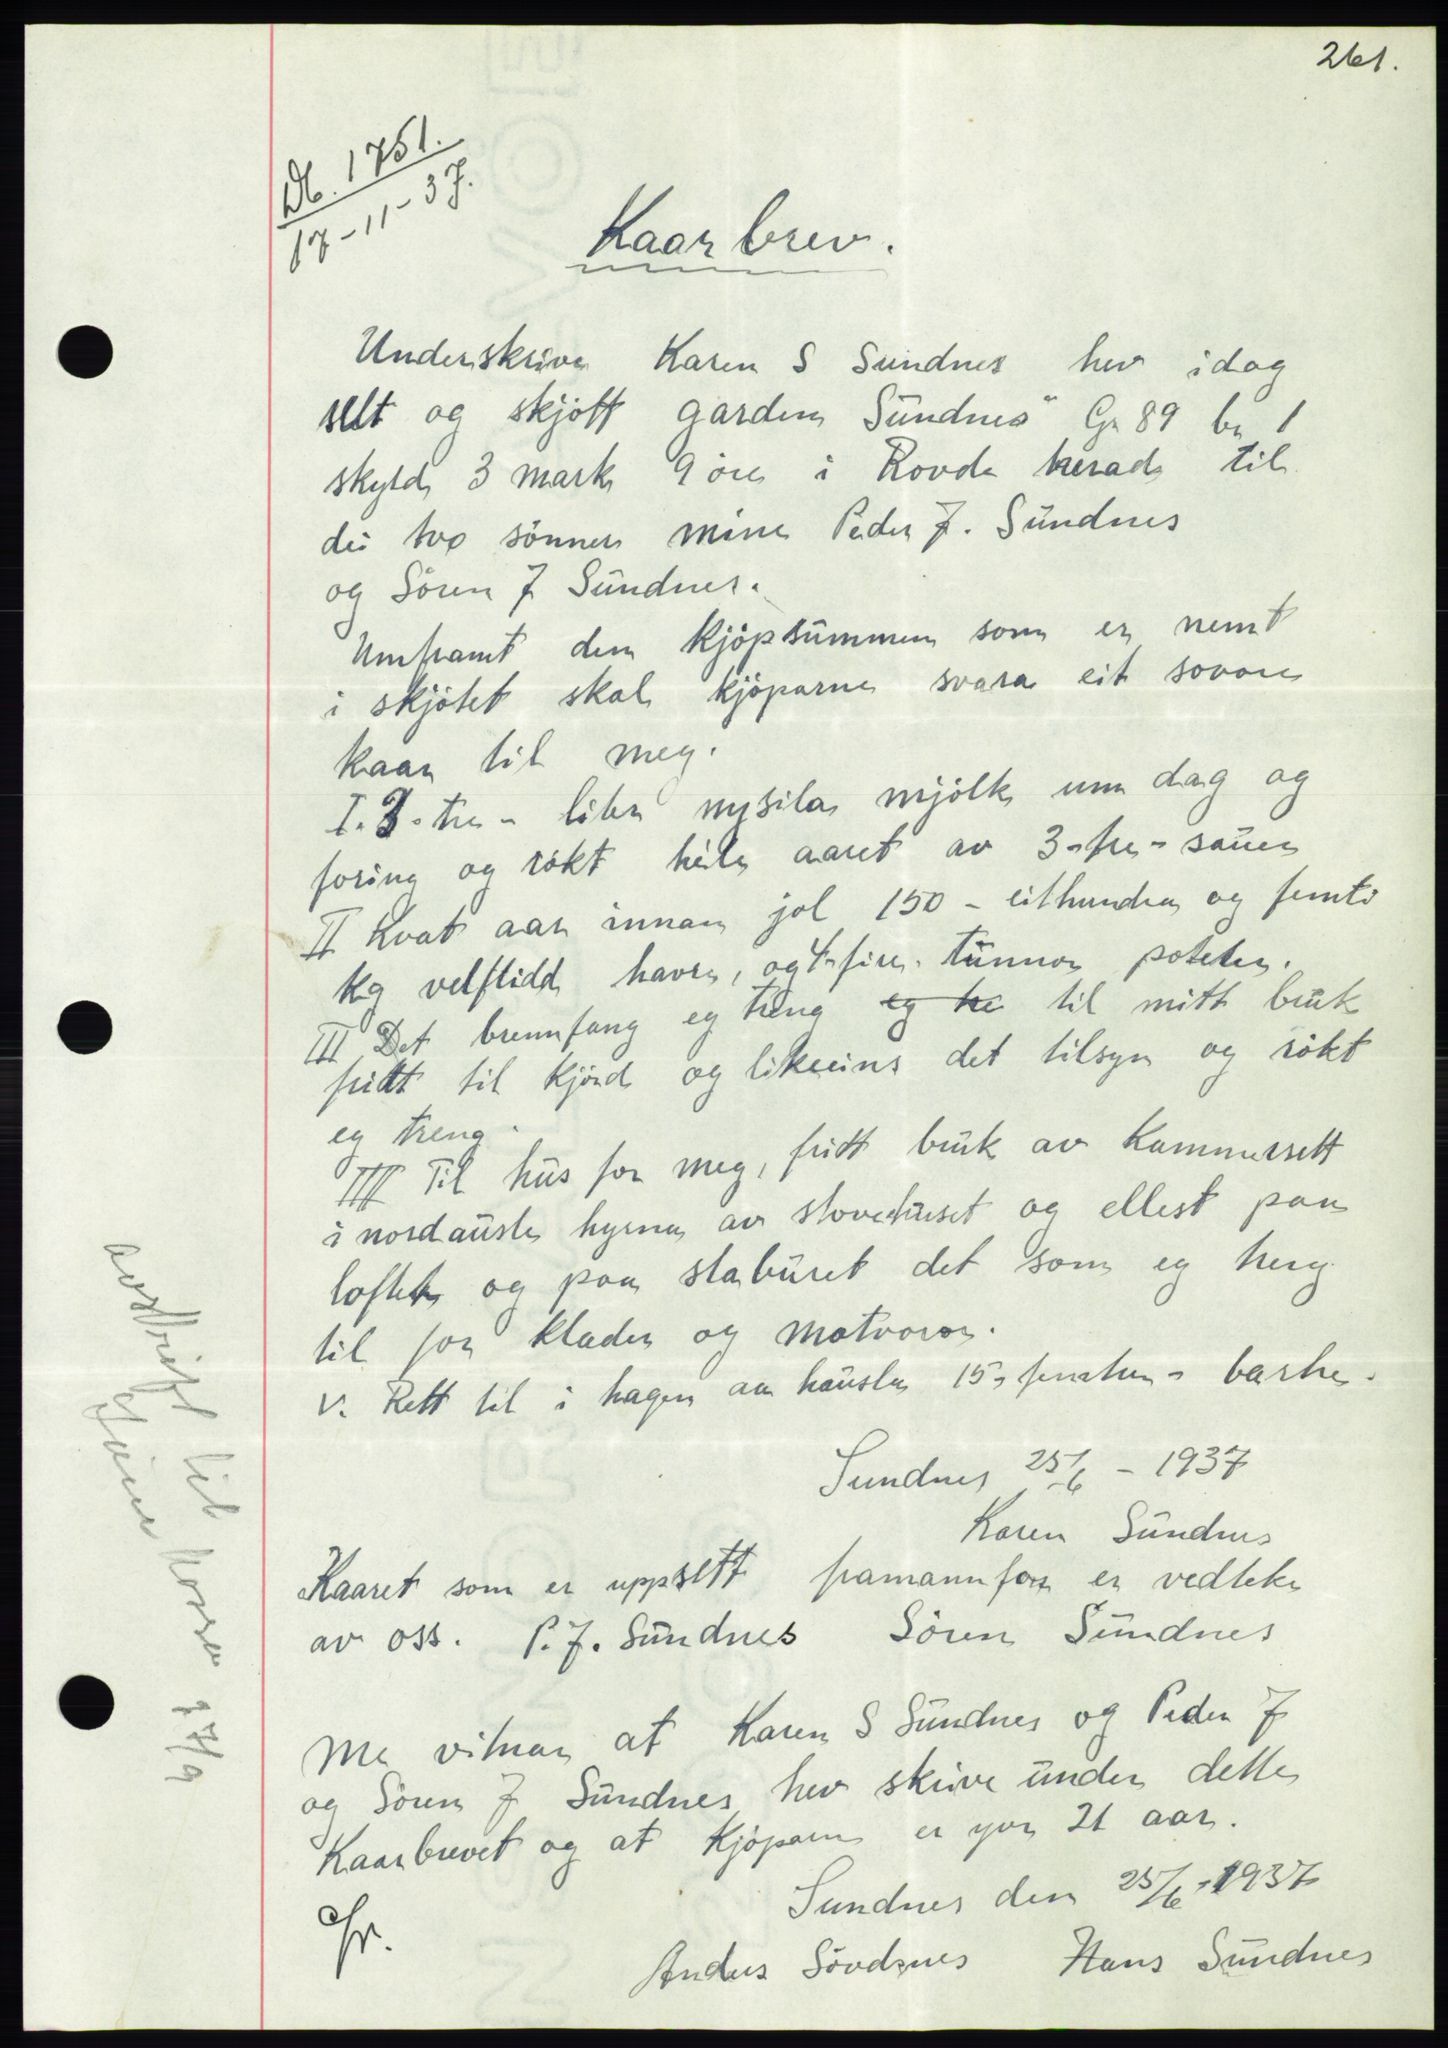 261.
Db. 1751.
17-11-37.
Kaarbrev.
Underskrive Karen S Sundnes hev idag
selt og skjøtt garden Sundnes" Gr 89 br 1
skyld 3 mark 9 öre i Rovde herad til
dei tvo sönner mine Peder J. Sundnes
og Sören J Sundnes.
Umframt den kjöpsummen som er nemt
i skjötet skal kjöparne svara eit sovore
kaar til meg.
I. 3 - tre - liter nysila mjölk um dag og
foring og rökt heile aaret av 3 - tre - sauer
II Kvat aar innan jol 150 - eithundra og femti
kg velflidd havre, og 4 - fire - tunnor poteter.
III Det brennfang eg treng til mitt bruk
fritt til kjörd og likeeins det tilsyn og rökt
eg treng.
IIII Til hus for meg, fritt bruk av kammersett
i nordauste hyrna av stovehuset og ellest paa
loftet og paa staburet det som eg treng
til for klæder og matvoror.
V. Rett til i hagen aa hausta 15 - femten - bærtre.
Sundnes 25/6 - 1937
Karen Sundnes
Kaaret som er uppsett framannfor er vedteke
av oss. P. J. Sundnes Sören Sundnes
Me vitnar at Karen S Sundnes og Peder J
og Sören J Sundnes hev skrive under dette
Kaarbrevet og at kjöparne er yvr 21 aar.
Sundnes den 25/6 - 1937
Anders Sövdsnes Hans Sundnes
avskrift til
17/9